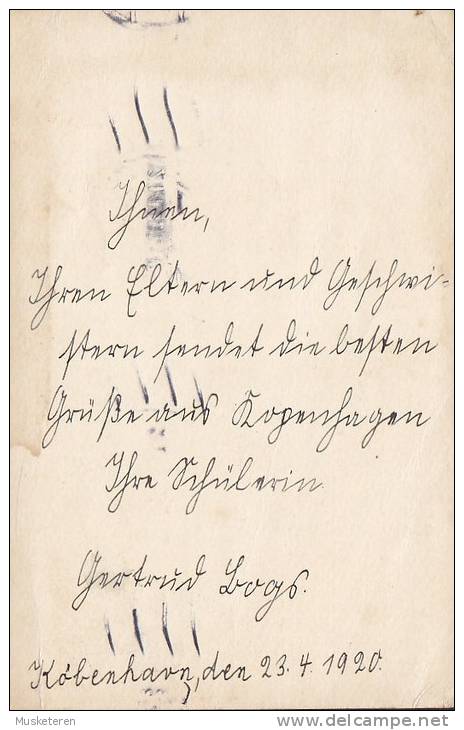 Ihnen,
Ihren Eltern und Geschwi-
stern sendet die besten
Grüße aus Kopenhagen
Ihre Schülerin
Gertrud Bogs.
København, den 23.4.1920.
Musketeren
delcampe.net